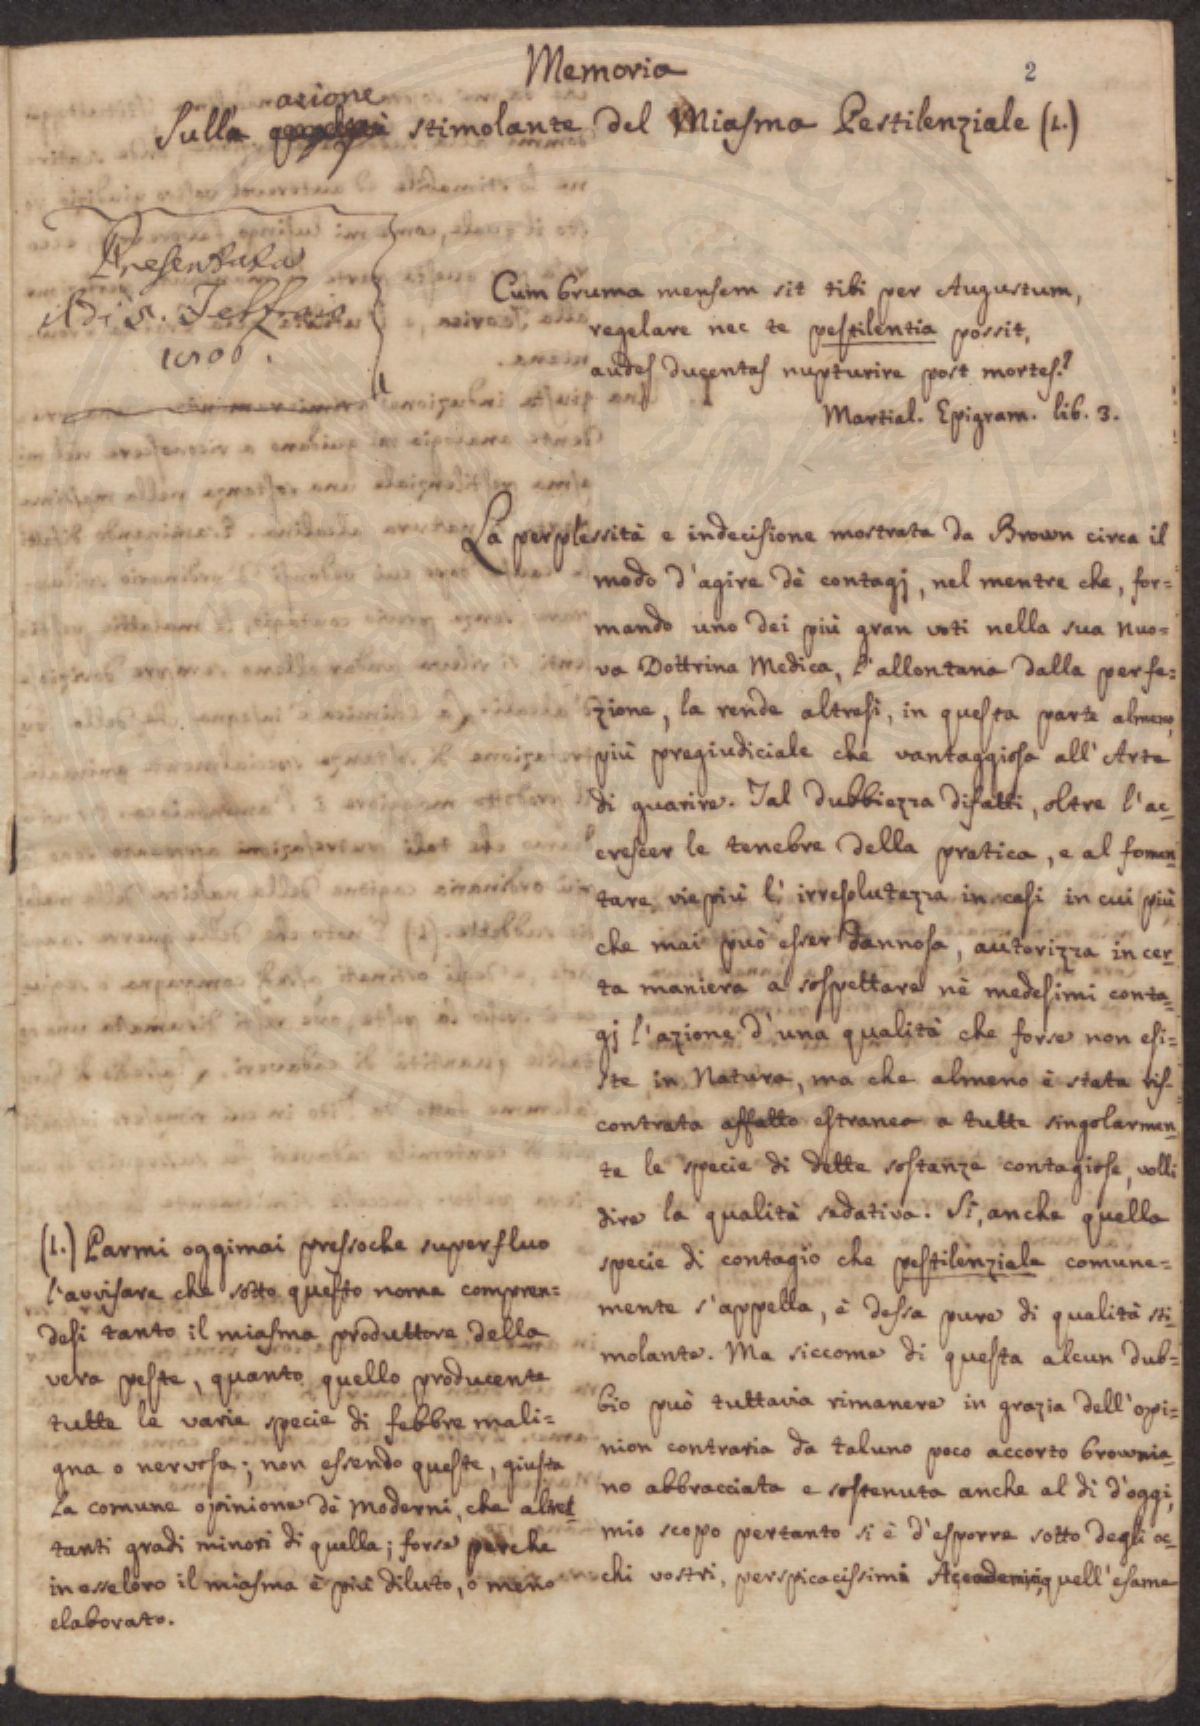 Memoria
2
azione
Sulla stimolante del Miasma Pestilenziale (1.)
Presentata
1806.
Cum bruma mensem sit tibi per Augustum,
regelare nec te pestilentia possit,
audes ducentas nupturire post mortes?
Martial. Epigram. lib. 3.
La perplessità e indecisione mostrata da Brown circa il
modo d'agire dè contagj, nel mentre che, for=
mando uno dei più gran voti nella sua nuo=
va Dottrina Medica, l'allontana dalla perfe=
zione, la rende altresì, in questa parte almeno,
più pregiudiciale che vantaggiosa all'Arte
di guarire. Tal dubbiezza difatti, oltre l'ac=
crescer le tenebre della pratica, e al fomen=
tare viepiù l'irresolutezza in casi in cui più
che mai può esser dannosa, autorizza in cer=
ta maniera a sospettare nè medesimi conta=
gj l'azione d'una qualità che forse non esi=
ste in Natura, ma che almeno è stata ris=
contrata affatto estranea a tutte singolarmen=
te le specie di dette sostanze contagiose, volli
dire la qualità sedativa. Sì, anche quella
specie di contagio che pestilenziale comune=
mente s'appella, è dessa pure di qualità sti=
molante. Ma siccome di questa alcun dub=
bio può tuttavia rimanere in grazia dell'opi=
nion contraria da taluno poco accorto brownia=
no abbracciata e sostenuta anche al dì d'oggi,
mio scopo pertanto si è d'esporre sotto degli oc=
chi vostri, perspicacissimi Accademici, quell'esame
(1.) Parmi oggimai pressoche superfluo
l'avvisare che sotto questo nome compren=
desi tanto il miasma produttore della
vera peste, quanto quello producente
tutte le varie specie di febbre mali=
gna o nervosa; non essendo queste, giusta
la comune opinione dè Moderni, che altret=
tanti gradi minori di quella; forse perche
in esse loro il miasma è più diluto, o meno
elaborato.